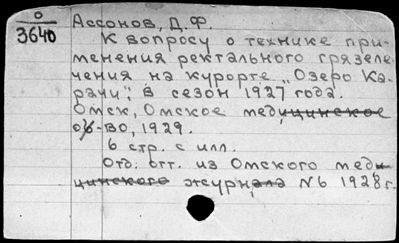 0
3640
Ассонов, Д.Ф.
К вопросу о технике при-
менения ректального грязеле-
чения на курорте „Озеро Ка-
рачи", в сезон 1927 года.
Омск, Омское медицинское
об-во, 1929.
6 стр. с илл.
Отд. отт. из Омского меди
цинского журнала N6 1928г.